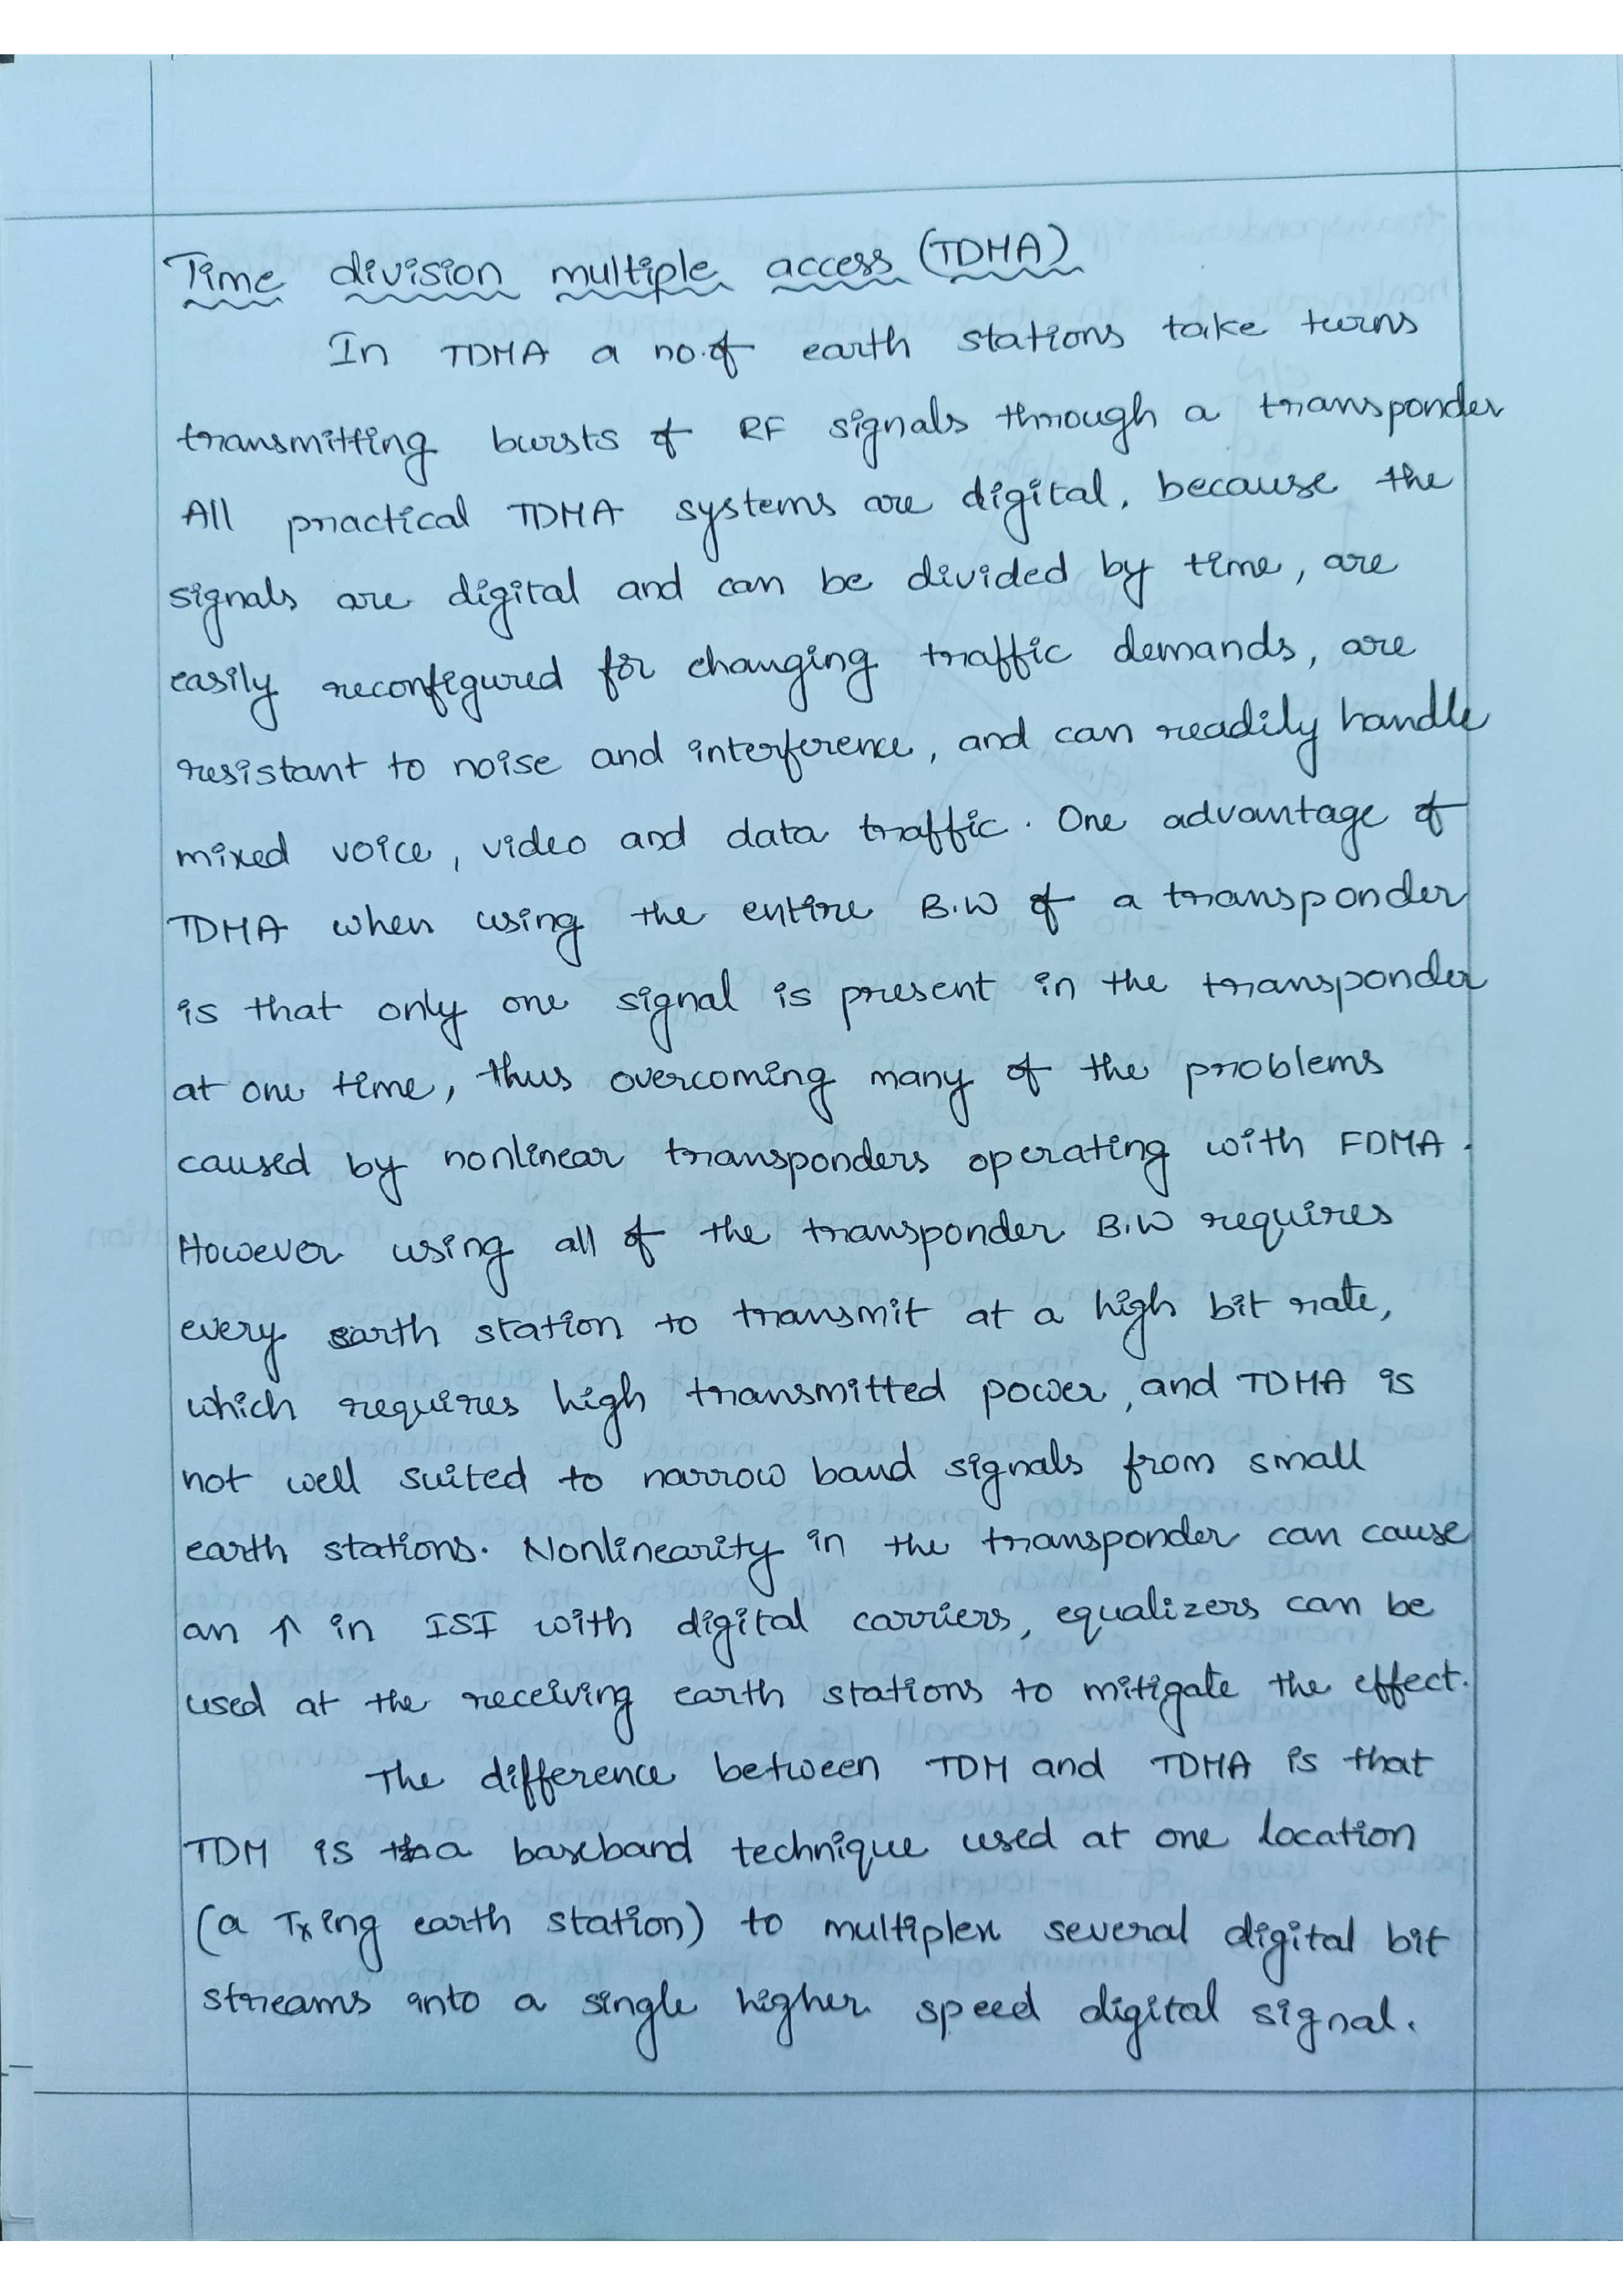 Time division multiple access (TDMA)
In TDMA a no.of earth stations take turns
transmitting bursts of RF signals through a transponder
All practical TDMA systems are digital, because the
signals are digital and can be divided by time, are
easily reconfigured for changing traffic demands, are
resistant to noise and interference, and can readily handle
mixed voice, video and data traffic. One advantage of
TDMA when using the entire B.W of a transponder
is that only one signal is present in the transponder
at one time, thus overcoming many of the problems
caused by nonlinear transponders operating with FDMA.
However using all of the transponder B.W requires
every earth station to transmit at a high bit rate,
which requires high transmitted power, and TDMA is
not well suited to narrow band signals from small
earth stations. Nonlinearity in the transponder can cause
an ↑ in ISI with digital carriers, equalizers can be
used at the receiving earth stations to mitigate the effect.
The difference between TDM and TDMA is that
TDM is a baseband technique used at one location
(a Txing earth station) to multiplex several digital bit
streams into a single higher speed digital signal.